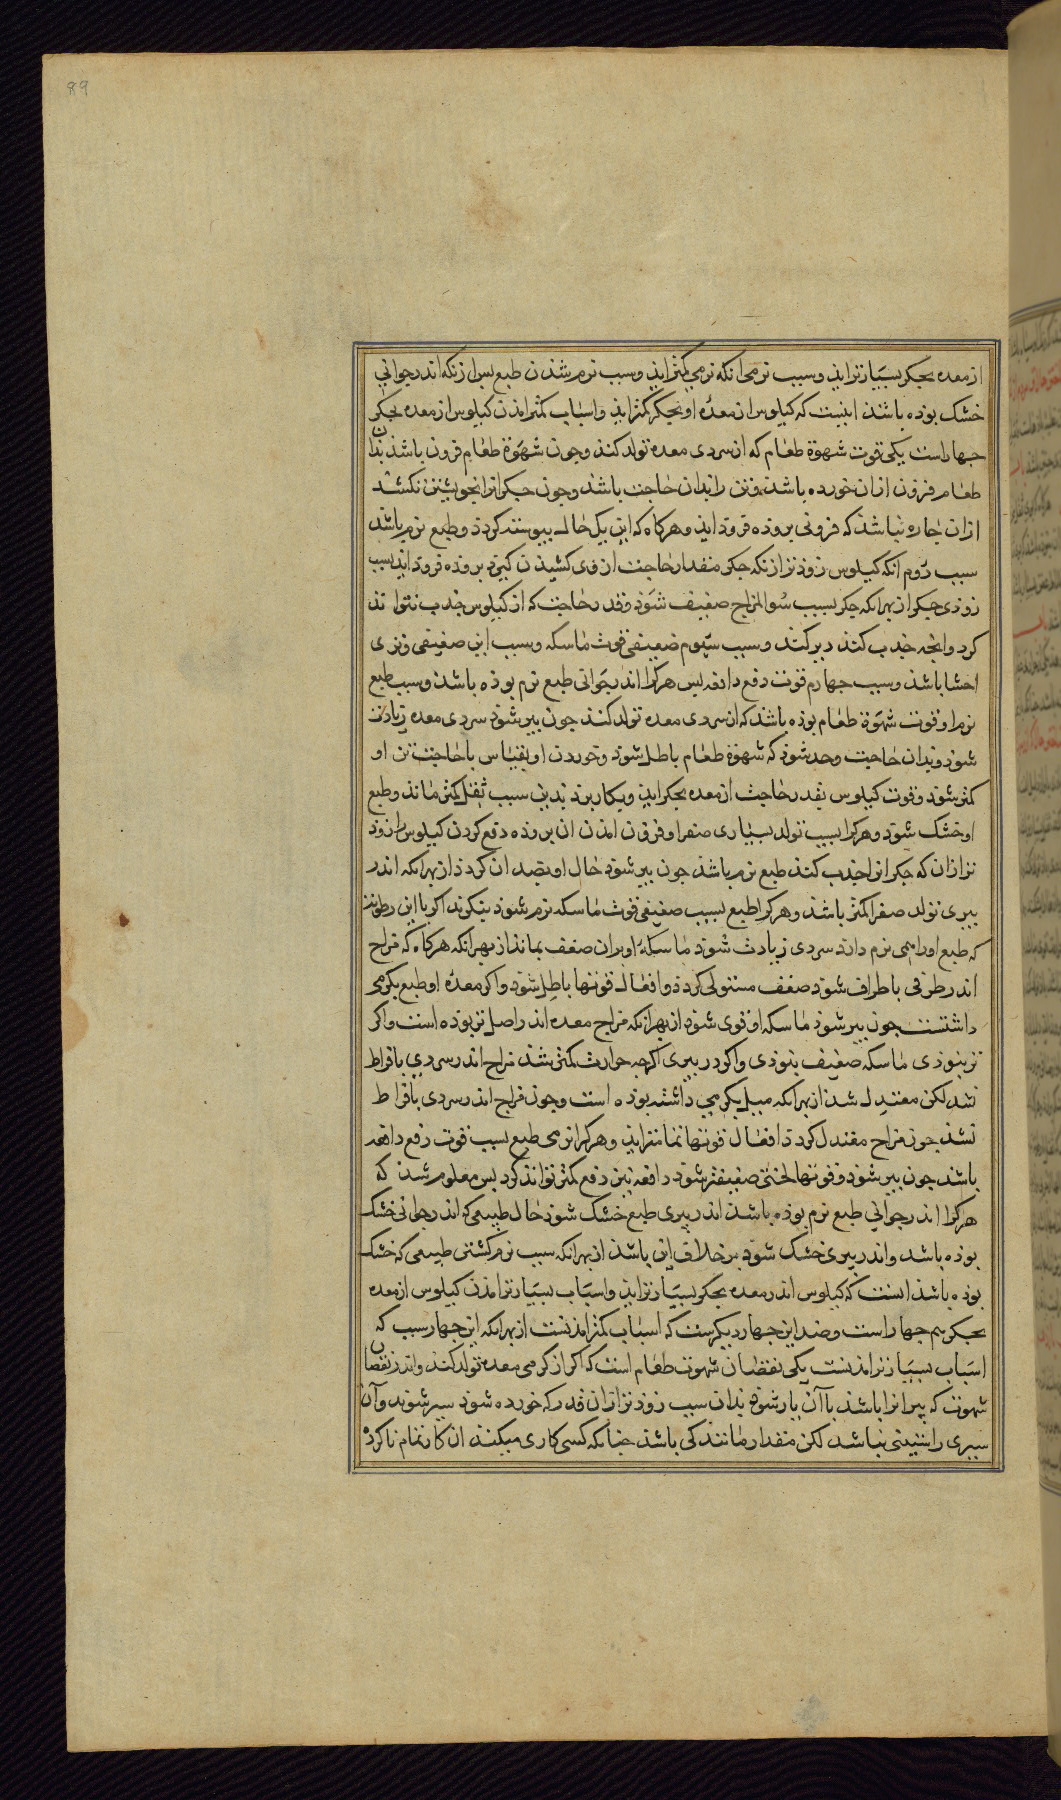 89
از معده بجکر بسیارتر اید و سبب نرمی انکه نرمی کمتر اید و سبب نرم شدن طبع پس ازانکه اندر جوانی
خشک بوده باشد اینست که کیلوس از معدهٔ او بجکر کمتر اید و اسباب کمتر امدن کیلوس از معده بجکر
چهار است یکی قوت شهوة طعام که از سردی معده تولد کند و چون شهوة طعام فزون باشد بدان
طعام فزون ازان خورده باشد و تن را بدان حاجت باشد و چون جکر انرا بخویشتن نکشد
ازان چاره نباشد که فزونی بروده فرود اید و هرکاه که این یک حال پیوسته کردد و طبع نرم باشد
سبب دوم انکه کیلوس زودتر ازانکه جکر مقدار حاجت از وی کشیدن کیرد بروده فرود اید بسبب
زودی جکر از بهر انکه جکر بسبب سوالمزاج ضعیف شود و قدر حاجت که از کیلوس جذب نتواند
کرد و انچه جذب کند دیر کند و سبب سیوم ضعیفی قوت ماسکه و سبب این ضعیفی و تری
احشا باشد و سبب چهارم قوت دفع دافعه پس هرکرا اندر جوانی طبع نرم بوده باشد و سبب طبع
نرم او قوت شهوة طعام بوده باشد که از سردی معده تولد کند چون پیر شود سردی معده زیادت
شود و بدان حاجت و حد شود که شهوة طعام باطل شود و خوردن او بقیاس با حاجت تن او
کمتر شود و قوت کیلوس بقدر حاجت از معده بجکر اید و بکار برد بدین سبب ثفل کمتر ماند و طبع
او خشک شود و هرکرا بسبب تولد بسیاری صفرا و فزون امدن ان بروده دفع کردن کیلوس را زود
تر ازان که جکر انرا جذب کند طبع نرم باشد چون پیر شود حال او بضد ان کردد از بهر انکه اندر
پیری تولد صفرا کمتر باشد و هرکرا طبع بسبب ضعیفی قوت ماسکه نرم شود بنکرند اکر با این رطوبت
که طبع او را همی نرم دارد سردی زیادت شود ماسکهٔ او بران ضعف بماند از بهر انکه هرکاه که مزاج
اندر طرفی باطراف شود ضعف مستولی کردد و افعال قوتها باطل شود و اکر معدهٔ او طبع بکرمی
داشتست چون پیر شود ماسکه او قوی شود از بهر انکه مزاج معده اندر اصل تر بوده است و اکر
تر نبودی ماسکه ضعیف نبودی و اکر در پیری اکرچه حرارت کمتر شد مزاج اندر سردی بافراط
نشد لکن معتدل شد از بهر انکه میل بکرمی داشته بوده است و چون مزاج اندر سردی بافراط
نشد چون مزاج معتدل کردد افعال قوتها تمامتر اید و هرکرا نرمی طبع بسبب قوت دفع دافعه
باشد چون پیر شود و قوتها لختی ضعیفتر شود دافعه نیز دفع کمتر تواند کرد پس معلوم شد که
هرکرا اندر جوانی طبع نرم بوده باشد اندر پیری طبع خشک شود حال طبیعی که اندر جوانی خشک
بوده باشد و اندر پیری خشک شود بر خلاف این باشد از بهر انکه سبب نرم کشتن طبیعی که خشک
بوده باشد انست که کیلوس اندر معده بجکر بسیارتر اید و اسباب بسیارتر امدن کیلوس از معده
بجکر هم چهار است و ضد این چهار دیکرست که اسباب کمتر امدنست از بهر انکه این چهار سبب که
اسباب بسیارتر امدنست یکی نقصان شهوت طعام است که اکر از کرمی معده تولد کند و اندر نقصان
شهوت که پیرانرا باشد با آن یار شود بدان سبب زودتر ازان قدر که خورده شود سیر شوند و آن
سیری راستینی نباشد لکن مقدار ماندکی باشد چنانکه کسی کاری میکند ان کار تمام ناکرده